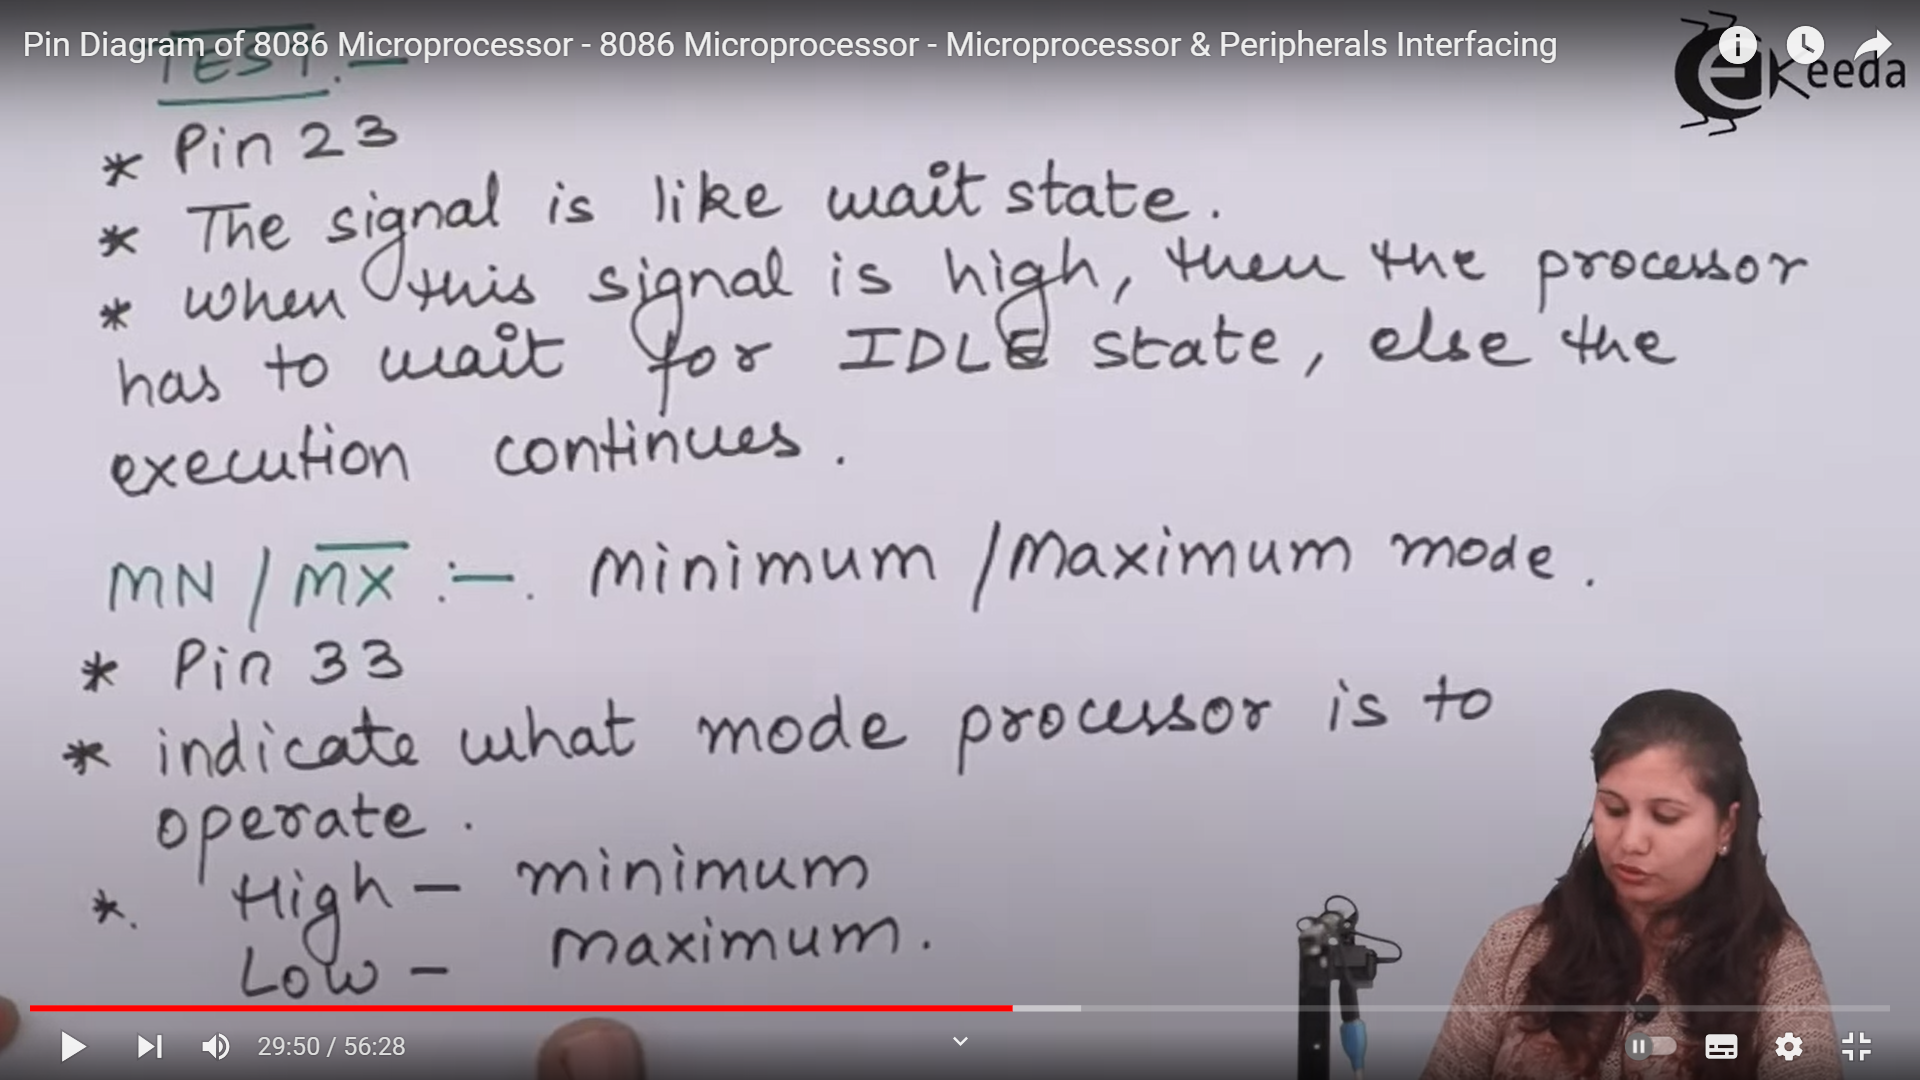 Pin Diagram of 8086 Microprocessor - 8086 Microprocessor - Microprocessor & Peripherals Interfacing
eKeeda
TEST :-
* Pin 23
* The signal is like wait state.
* When this signal is high, then the processor
has to wait for IDLE state, else the
execution continues.
MN / MX :-. Minimum / Maximum mode.
* Pin 33
* indicate what mode processor is to
operate.
*. High - minimum
Low - maximum.
29:50 / 56:28